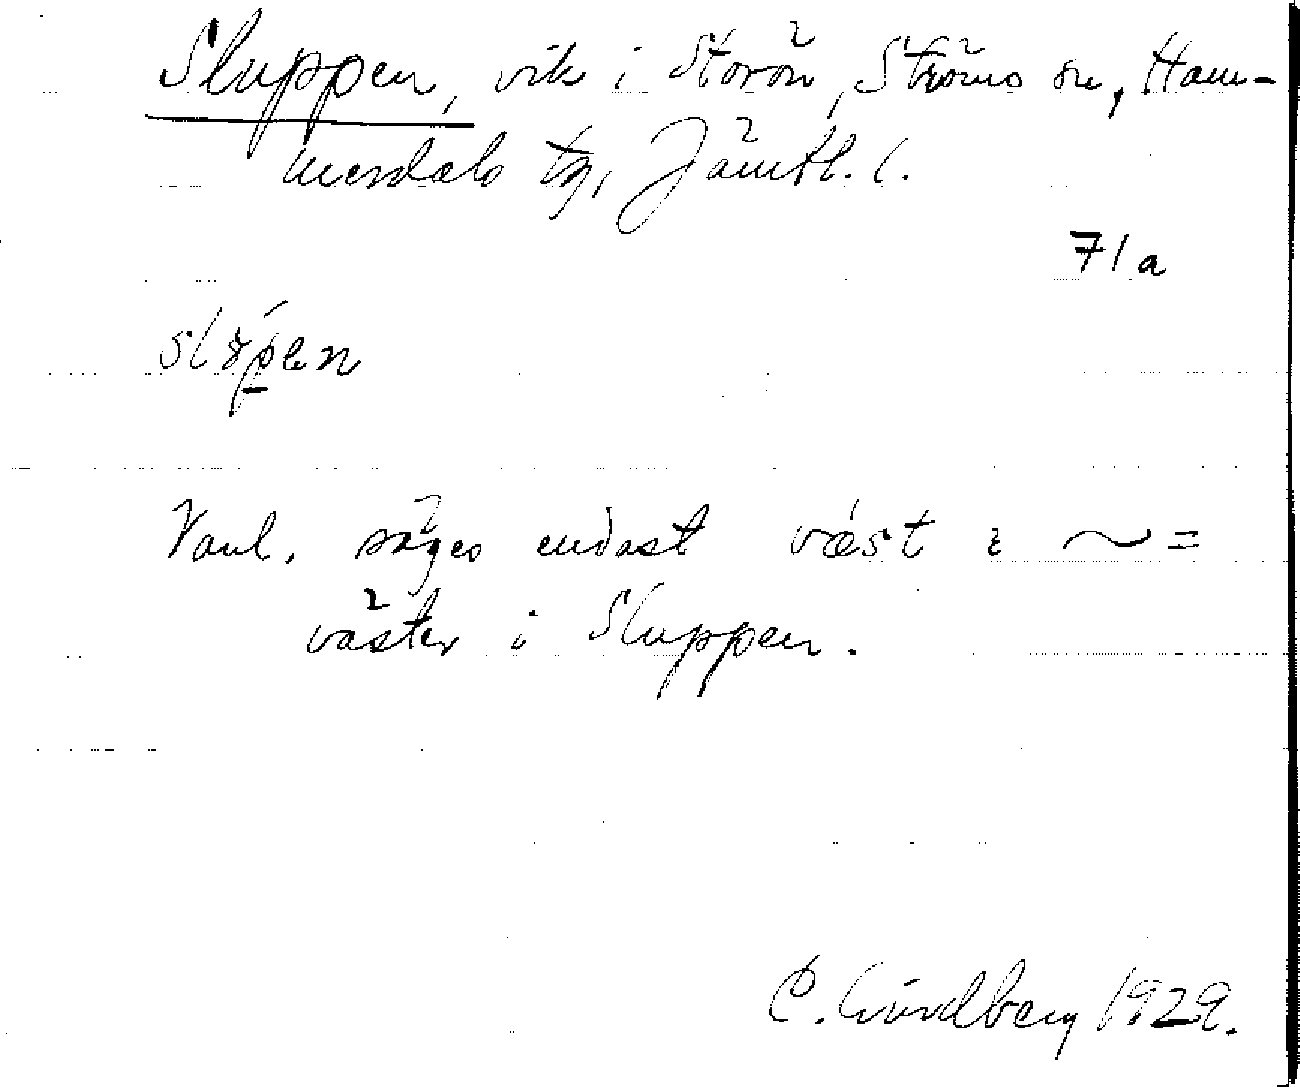 Sluppen, vik i Storön, Ströms sn, Ham-
merdals tg, Jämtl. l.
71a
Vanl. säges endast väst i ~ =
väster i Sluppen.
C. Lindberg 1929.